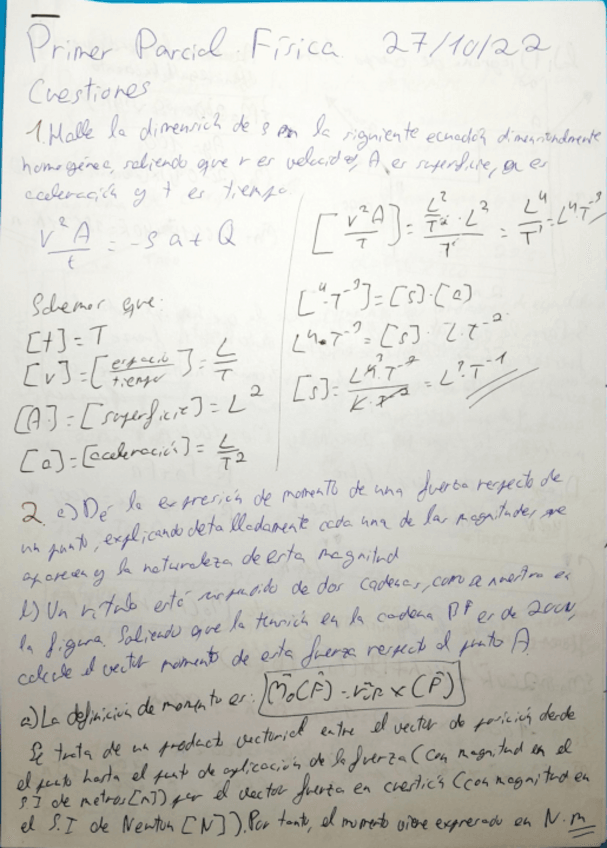 Primer Parcial Física 27/10/22
Cuestiones
1. Halle la dimensión de s en la siguiente ecuación dimensionalmente
homogénea, sabiendo que v es velocidad, A es superficie, a es
aceleración y t es tiempo.
v²A/t = -s a + Q
Sabemos que:
[t] = T
[v] = [espacio/tiempo] = L/T
[A] = [superficie] = L²
[a] = [aceleración] = L/T²
[v²A/t] = (L²/T² · L²)/T = L⁴/T³ = L⁴T⁻³
[L⁴T⁻³] = [s]·[a]
L⁴·T⁻³ = [s] · L·T⁻²
[s] = L⁴T⁻³/L·T⁻² = L³·T⁻¹
2. a) Dé la expresión de momento de una fuerza respecto de
un punto, explicando detalladamente cada una de las magnitudes que
aparecen y la naturaleza de esta magnitud
b) Un rótulo está suspendido de dos cadenas, como se muestra en
la figura. Sabiendo que la tensión en la cadena es de 200N,
calcule el vector momento de esta fuerza respecto al punto A.
a) La definición de momento es: M₀(F) = × (F)
Se trata de un producto vectorial entre el vector de posición desde
el punto hasta el punto de aplicación de la fuerza (con magnitud en el
S.I de metros [m]) por el vector fuerza en cuestión (con magnitud en
el S.I de Newton [N]). Por tanto, el momento viene expresado en N·m